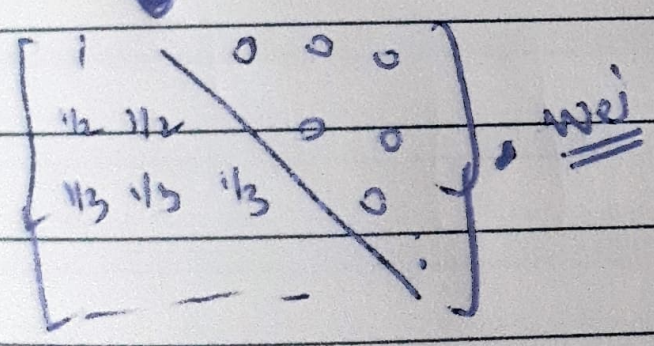 1 0 0 0
1/2 1/2 0 0
1/3 1/3 1/3 0
- - - .
. wei